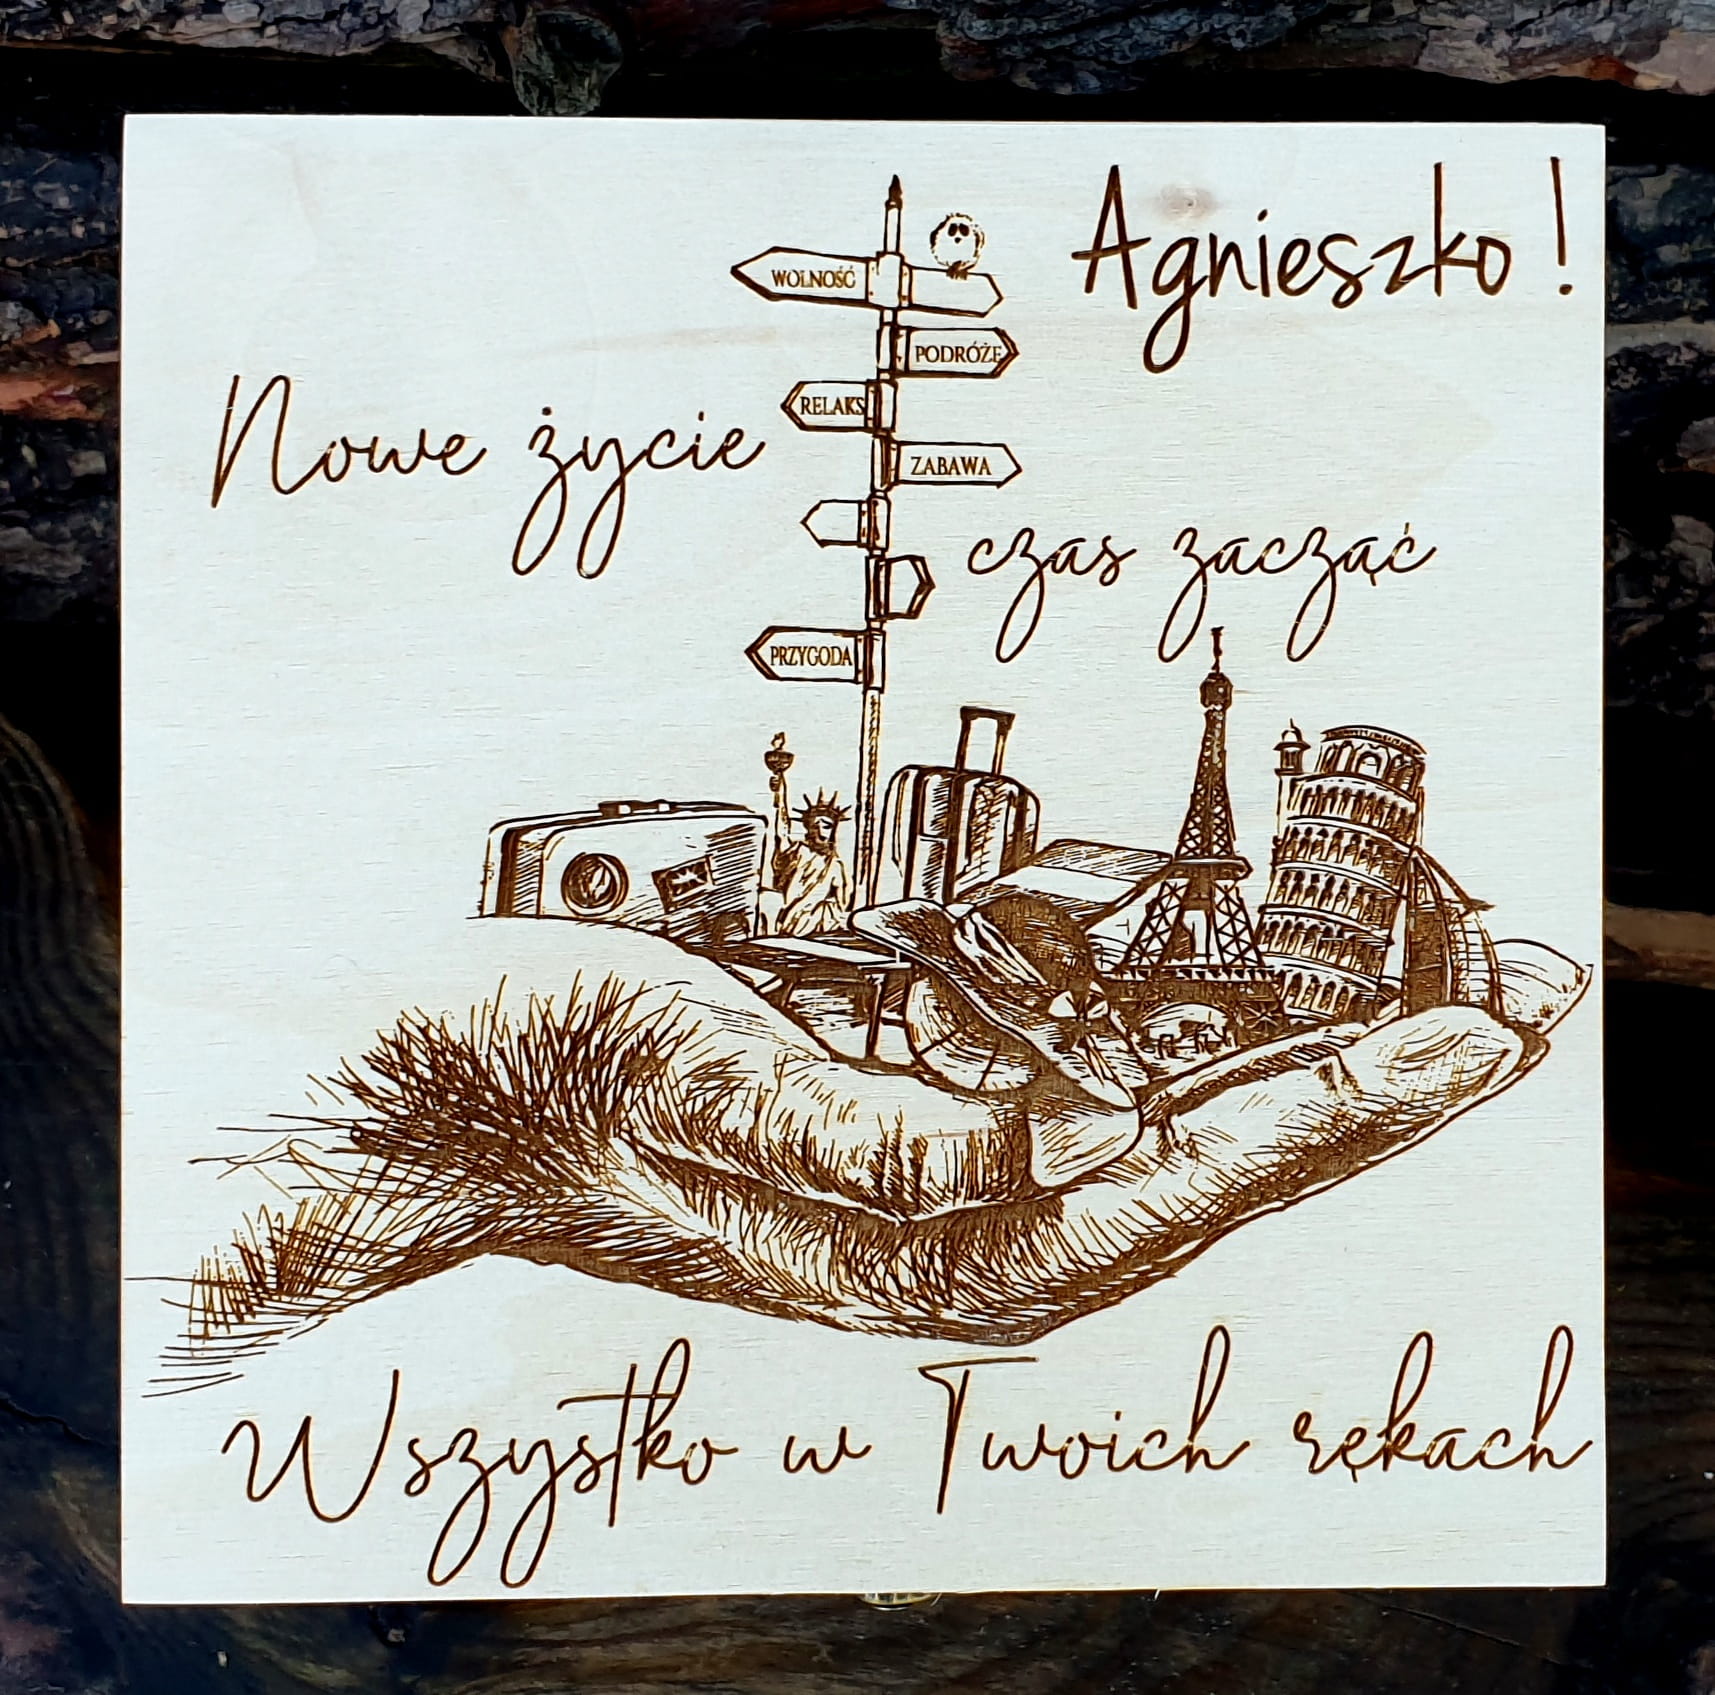 Agnieszko!
WOLNOŚĆ
PODRÓŻE
RELAKS
Nowe życie
ZABAWA
czas zacząć
PRZYGODA
Wszystko w Twoich rękach